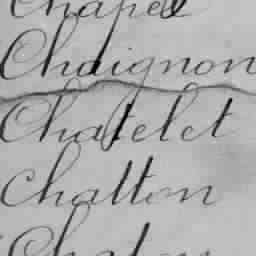 Chapel
Chaignon
Chatelet
Chatton